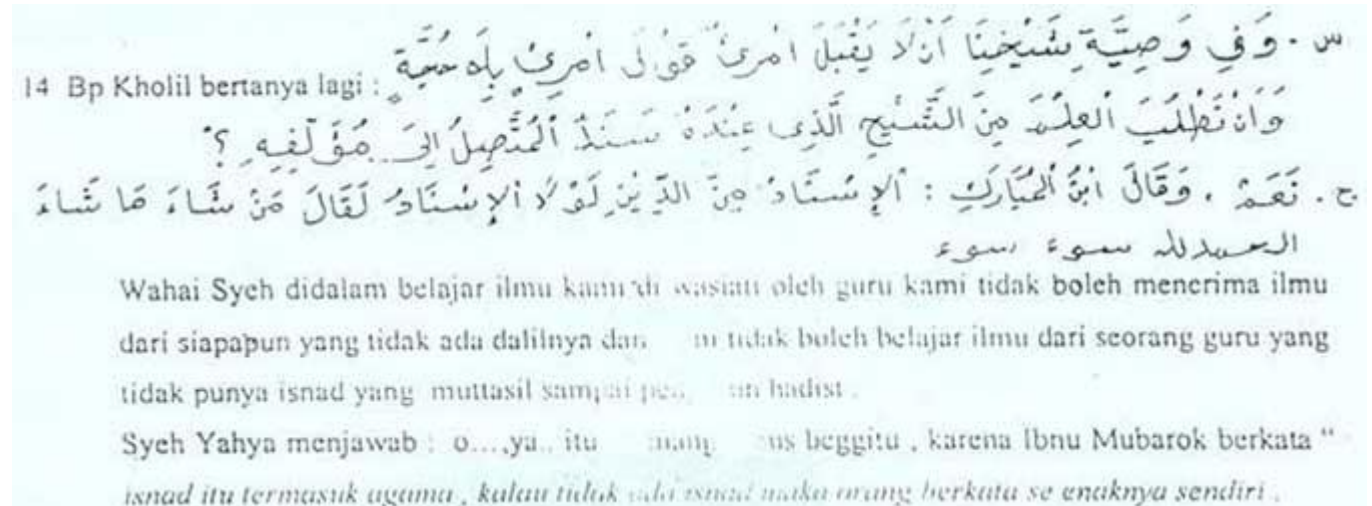 س. وَفِي وَصِيَّةِ شَيْخِنَا أَنْ لَا يَقْبَلَ امْرِئٌ قَوْلَ امْرِئٍ بِلَا حُجَّةٍ
14 Bp Kholil bertanya lagi :
وَاَنْ نَطْلُبَ الْعِلْمَ مِنَ الشَّيْخِ الَّذِى عِنْدَهُ سَنَدُ الْمُتَّصِلُ اِلَى مُؤَلِّفِهِ ؟
ج. نَعَمْ ، وَقَالَ ابْنُ الْمُبَارَكِ : اَلْإِسْنَادُ مِنَ الدِّيْنِ لَوْ لَا الْإِسْنَادُ لَقَالَ مَنْ شَاءَ مَا شَاءَ
الحمدلله سوء سوء
Wahai Syeh didalam belajar ilmu kami di wasiati oleh guru kami tidak boleh menerima ilmu
dari siapapun yang tidak ada dalilnya dan tidak boleh belajar ilmu dari seorang guru yang
tidak punya isnad yang muttasil sampai hadist .
Syeh Yahya menjawab : o...,ya.. itu beggitu , karena Ibnu Mubarok berkata “
isnad itu termasuk agama , kalau tidak ada isnad maka orang berkata se enaknya sendiri .